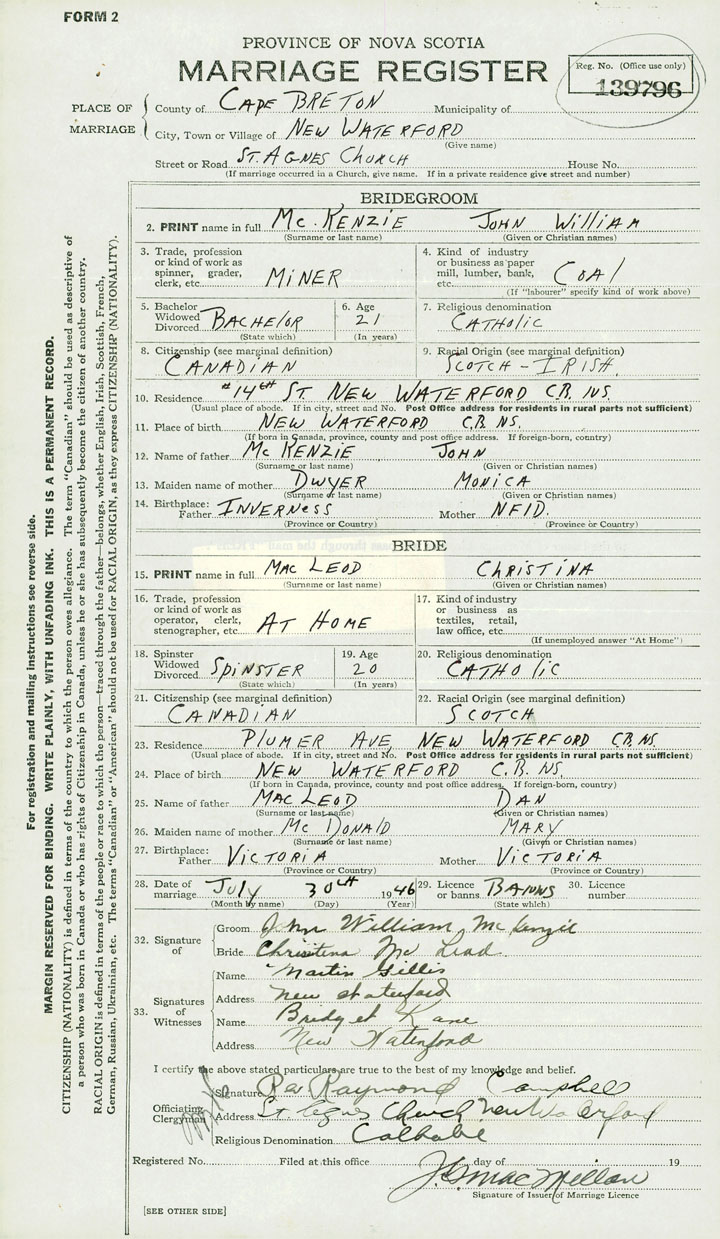 FORM 2
PROVINCE OF NOVA SCOTIA
MARRIAGE REGISTER
Reg. No. (Office use only)
139796
PLACE OF MARRIAGE
County of CAPE BRETON Municipality of
City, Town or Village of NEW WATERFORD
(Give name)
Street or Road ST. AGNES CHURCH House No.
(If marriage occurred in a Church, give name. If in a private residence give street and number)
BRIDEGROOM
2. PRINT name in full Mc. KENZIE JOHN WILLIAM
(Surname or last name) (Given or Christian names)
3. Trade, profession or kind of work as spinner, grader, clerk, etc. MINER
4. Kind of industry or business as paper mill, lumber, bank, etc. COAL
(If "labourer" specify kind of work above)
5. Bachelor Widowed Divorced BACHELOR
(State which)
6. Age 21
(In years)
7. Religious denomination
CATHOLIC
8. Citizenship (see marginal definition)
CANADIAN
9. Racial Origin (see marginal definition)
SCOTCH - IRISH.
10. Residence #14th ST. NEW WATERFORD C.B. NS.
(Usual place of abode. If in city, street and No. Post Office address for residents in rural parts not sufficient)
11. Place of birth NEW WATERFORD C.B. NS.
(If born in Canada, province, county and post office address. If foreign-born, country)
12. Name of father Mc KENZIE JOHN
(Surname or last name) (Given or Christian names)
13. Maiden name of mother DWYER MONICA
(Surname or last name) (Given or Christian names)
14. Birthplace: Father INVERNESS Mother NFLD.
(Province or Country) (Province or Country)
BRIDE
15. PRINT name in full MAC LEOD CHRISTINA
(Surname or last name) (Given or Christian names)
16. Trade, profession or kind of work as operator, clerk, stenographer, etc. AT HOME
17. Kind of industry or business as textiles, retail, law office, etc.
(If unemployed answer "At Home")
18. Spinster Widowed Divorced SPINSTER
(State which)
19. Age 20
(In years)
20. Religious denomination
CATHOLIC
21. Citizenship (see marginal definition)
CANADIAN
22. Racial Origin (see marginal definition)
SCOTCH
23. Residence PLUMER AVE, NEW WATERFORD C.B. NS.
(Usual place of abode. If in city, street and No. Post Office address for residents in rural parts not sufficient)
24. Place of birth NEW WATERFORD C.B. NS.
(If born in Canada, province, county and post office address. If foreign-born, country)
25. Name of father MAC LEOD DAN
(Surname or last name) (Given or Christian names)
26. Maiden name of mother Mc DONALD MARY
(Surname or last name) (Given or Christian names)
27. Birthplace: Father VICTORIA Mother VICTORIA
(Province or Country) (Province or Country)
28. Date of marriage July 30th 1946
(Month by name) (Day) (Year)
29. Licence or banns BANNS
(State which)
30. Licence number
32. Signature of
Groom John William McKenzie
Bride Christina Mc Leod
33. Signatures of Witnesses
Name Martin Gillis
Address New Waterford
Name Bridget Kane
Address New Waterford
I certify the above stated particulars are true to the best of my knowledge and belief.
Officiating Clergyman
Signature Rev Raymond Campbell
Address St. Agnes Church New Waterford
Religious Denomination Catholic
Registered No. Filed at this office day of 19
J.G. MacMillan
Signature of Issuer of Marriage Licence
[SEE OTHER SIDE]
For registration and mailing instructions see reverse side.
MARGIN RESERVED FOR BINDING. WRITE PLAINLY, WITH UNFADING INK. THIS IS A PERMANENT RECORD.
CITIZENSHIP (NATIONALITY) is defined in terms of the country to which the person owes allegiance. The term "Canadian" should be used as descriptive of
a person who was born in Canada or who has rights of Citizenship in Canada, unless he or she has subsequently become the citizen of another country.
RACIAL ORIGIN is defined in terms of the people or race to which the person—traced through the father—belongs, whether English, Irish, Scottish, French,
German, Russian, Ukrainian, etc. The terms "Canadian" or "American" should not be used for RACIAL ORIGIN, as they express CITIZENSHIP (NATIONALITY).